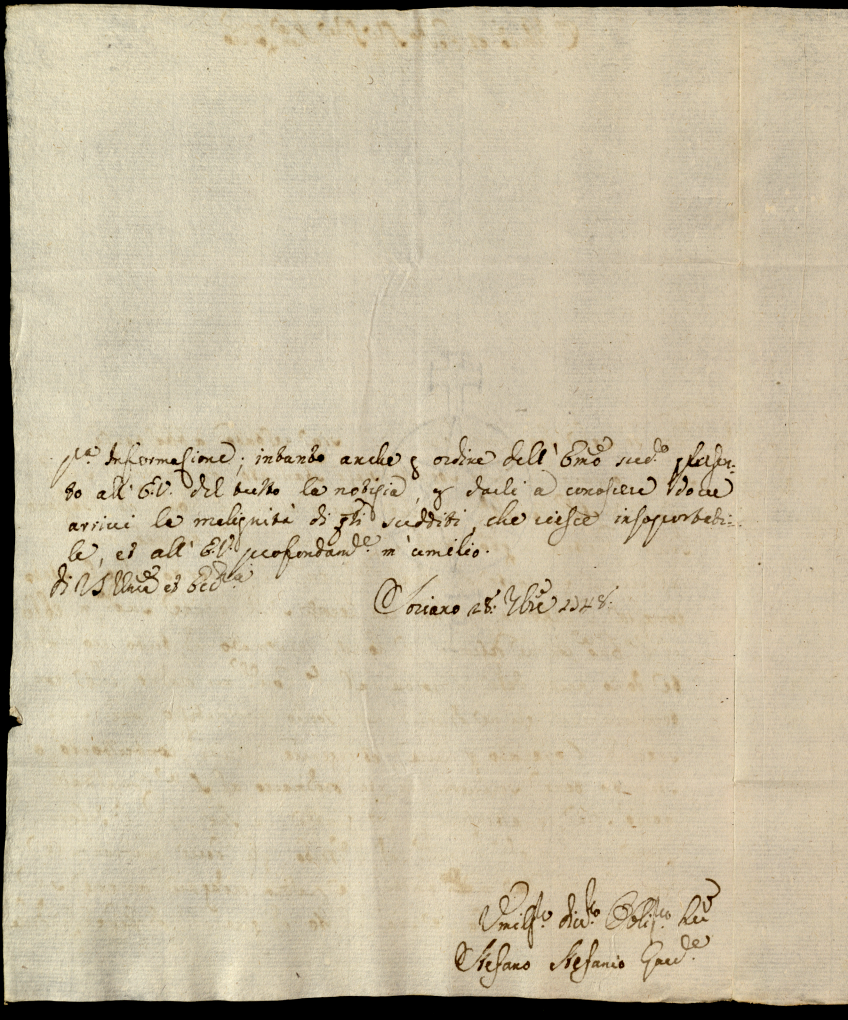 Informazione; intanto anche ꝑ ordine dell' Emo sudo
to all' E.V. del tutto la notizia, ꝑ darli a conoscere dove
arrivi la malignità di qti sudditi, che riesce insoportabi=
le, et all' E.V. profondamte m'umilio.
di V.S. Illma et
Soriano 28: 7bre 1748:
Umilsso Oblisso
Stefano Stefanio